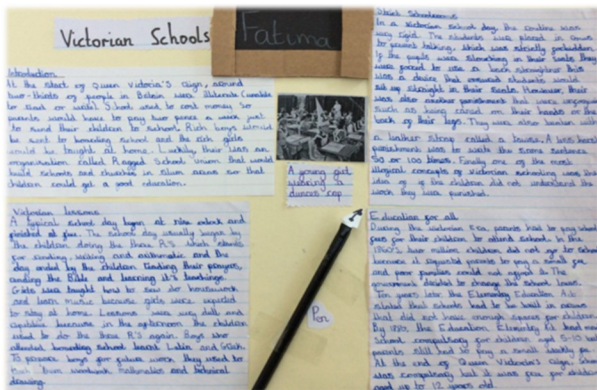 Victorian Schools
Fatima
Introduction
At the start of Queen Victoria's reign, around
two-thirds of people in Britain were illiterate (unable
to read or write). School used to cost money so
parents would have to pay two pence a week just
to send their children to school. Rich boys would
be sent to boarding school and the rich girls
would be taught at home. Luckily, their was an
organisation called Ragged School Union that would
build schools and churches in slum areas so that
children could get a good education.
A young girl
wearing a
dunces cap
Victorian lessons
A typical school day began at nine oclock and
finished at five. The school day usually began by
the children doing the three R's which stands
for reading, writing and arithmetic and the
day ended by the children reading their prayers,
reading the Bible and learning it's teachings.
Girls were taught how to sew do housework
and learn music because girls were expected
to stay at home. Lessons were very dull and
because in the afternoon the children
went to do the three R's again. Boys who
attended boarding school learnt Latin and Greek.
To prepare boys for future work they used to
woodwork, mathematics and technical
drawing.
Pen
Strict Schoolrooms
In a Victorian school day, the routine was
very rigid. The students were placed in rows
to prevent talking, which was strictly forbidden.
If the pupils were slouching in their seats they
were forced to use a back straightner this
was a device that ensured students would
sit up straight in their seats. However, their
was also another punishment that were
such as being caned on their hands or the
back of their legs. They were also beaten with
a leather strap called a tawse. A less harsh
punishment was to write the same sentence
50 or 100 times. Finally one of the most
illogical concepts of victorian schooling was the
idea of if the children did not understand the
work they were punished.
Education for all
During the Victorian Era, parents had to pay school
fees for their children to attend school. In the
1860's, two million children did not go to school
because it required parents to pay a small fee
and poor families could not afford it. The
government decided to change the school laws.
Ten years later the Elementary Education Act
stated that schools had to be built in places
that did not have enough spaces for children.
By 1880, the Education Elementry Act had made
school compulsory for children aged 5-10 but
parents still had to pay a small weekly fee.
At the end of Queen Victoria's reign, school
was compulsory and it was free for children
aged up to 12 years old.